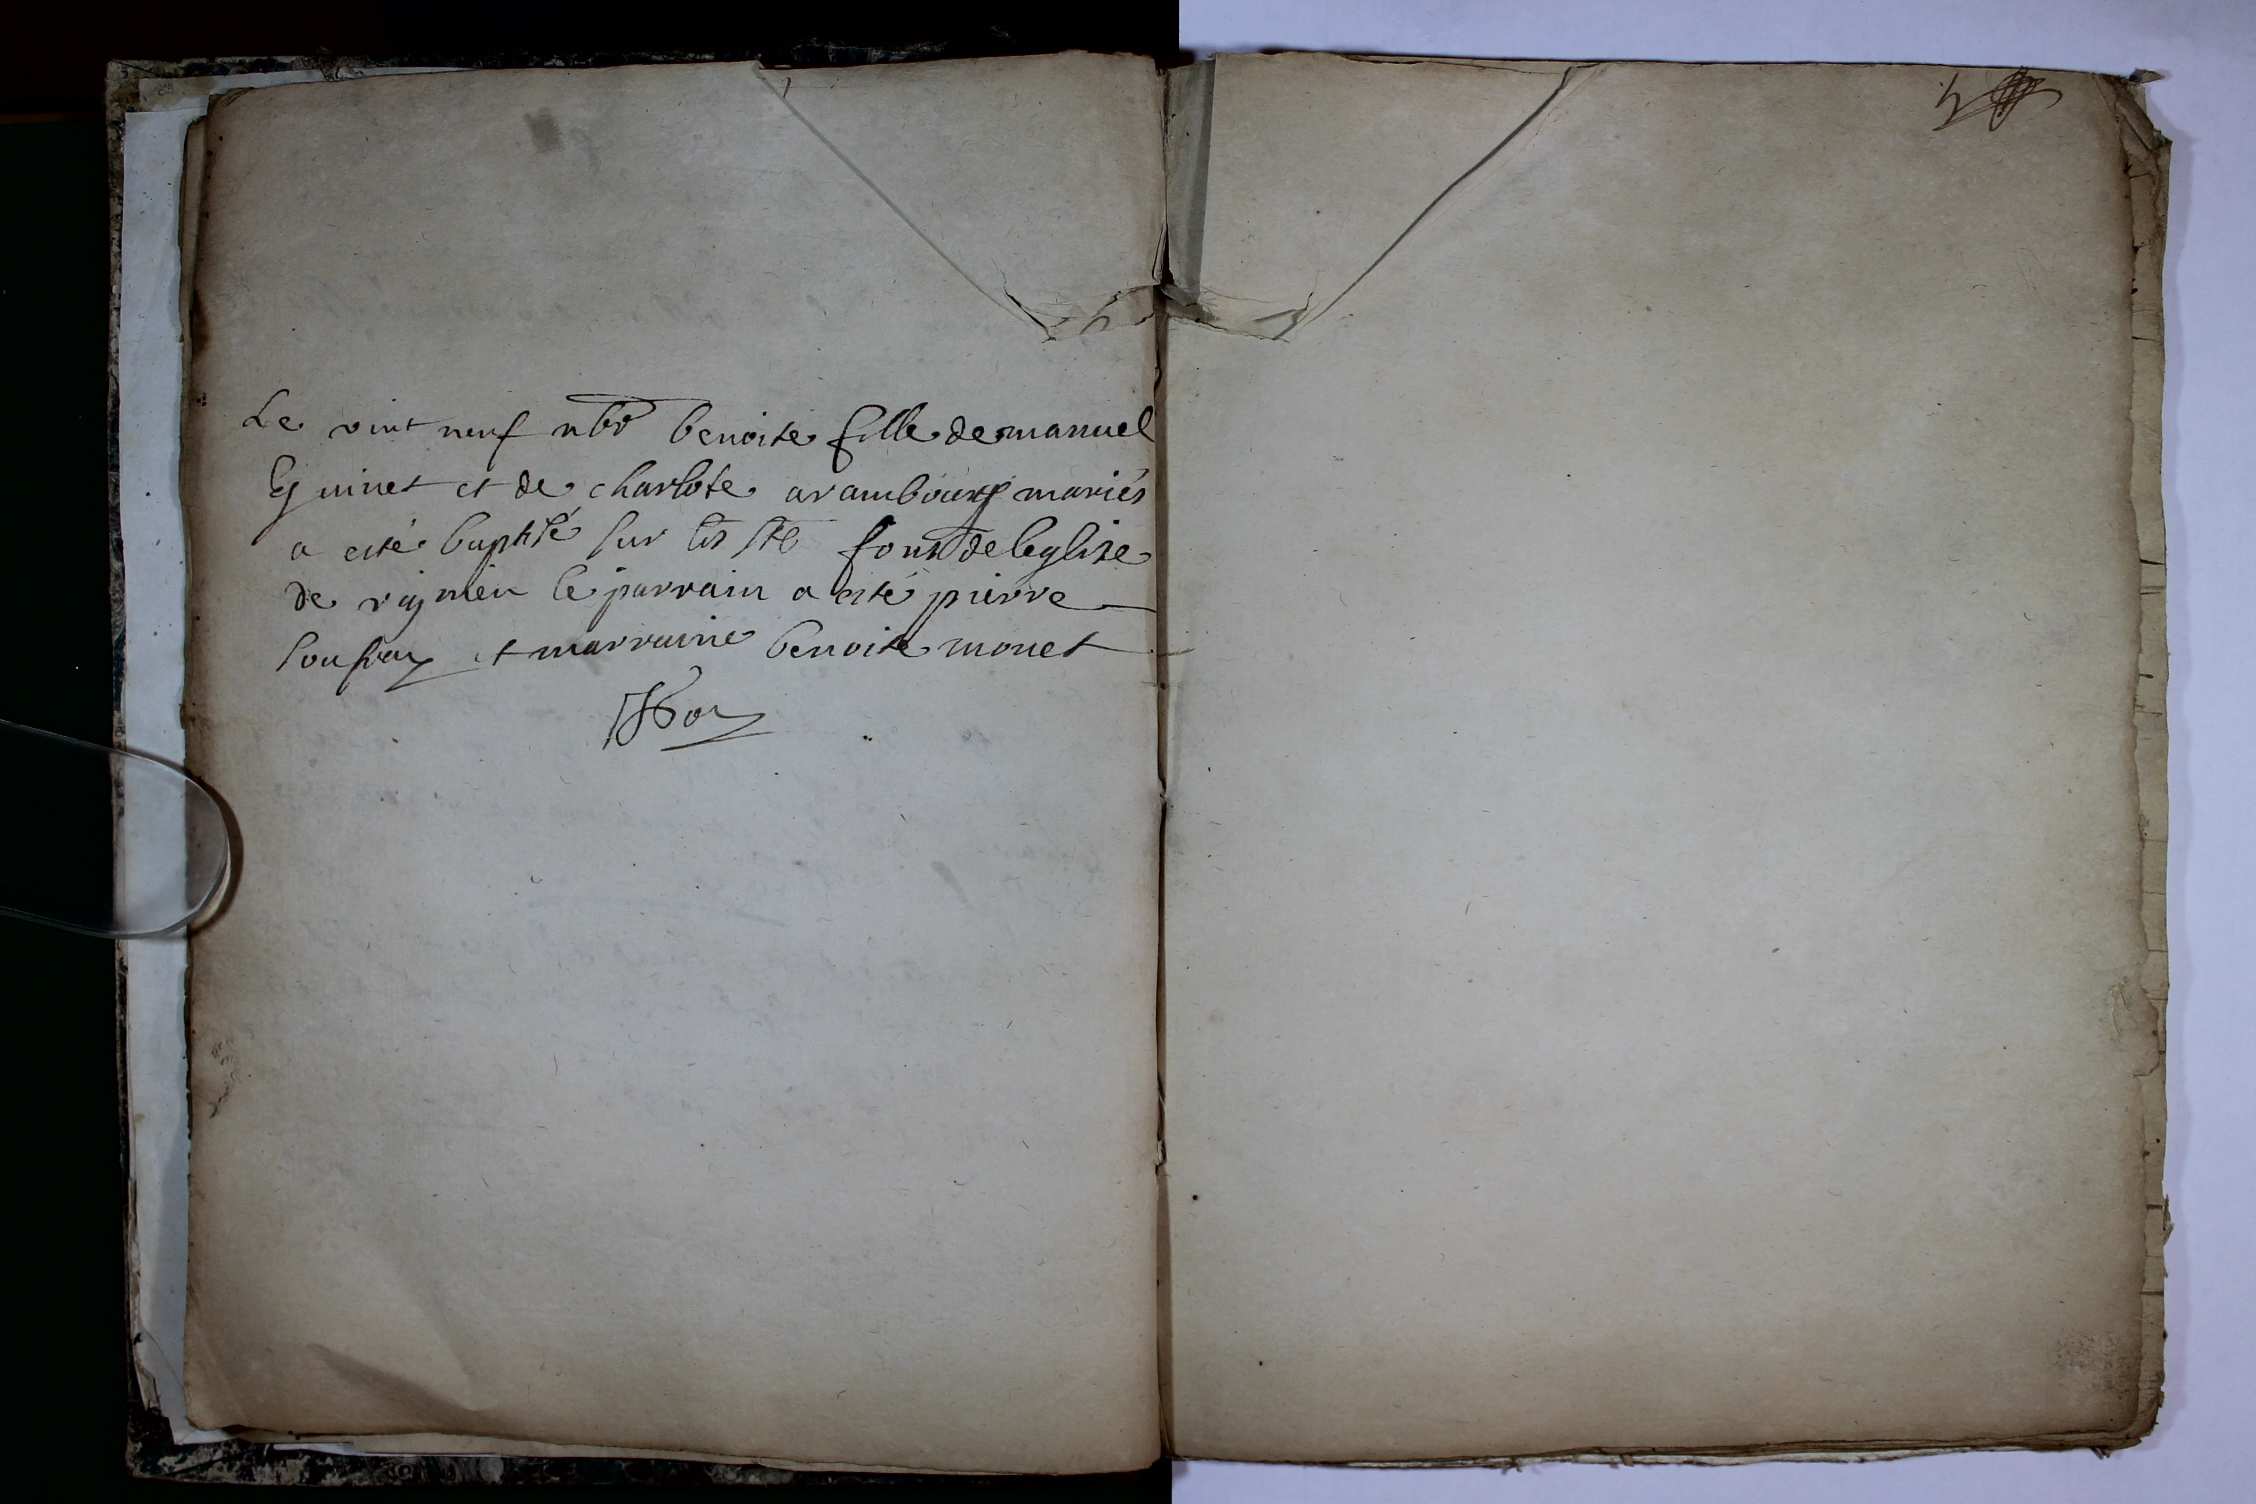 Le vint neuf nbr benoite fille de manuel
Guinet et de charlote arambourg mariés
a esté baptisé sur les sts fons de leglise
de rignieu le parrain a esté pierre
et marraine benoite monet